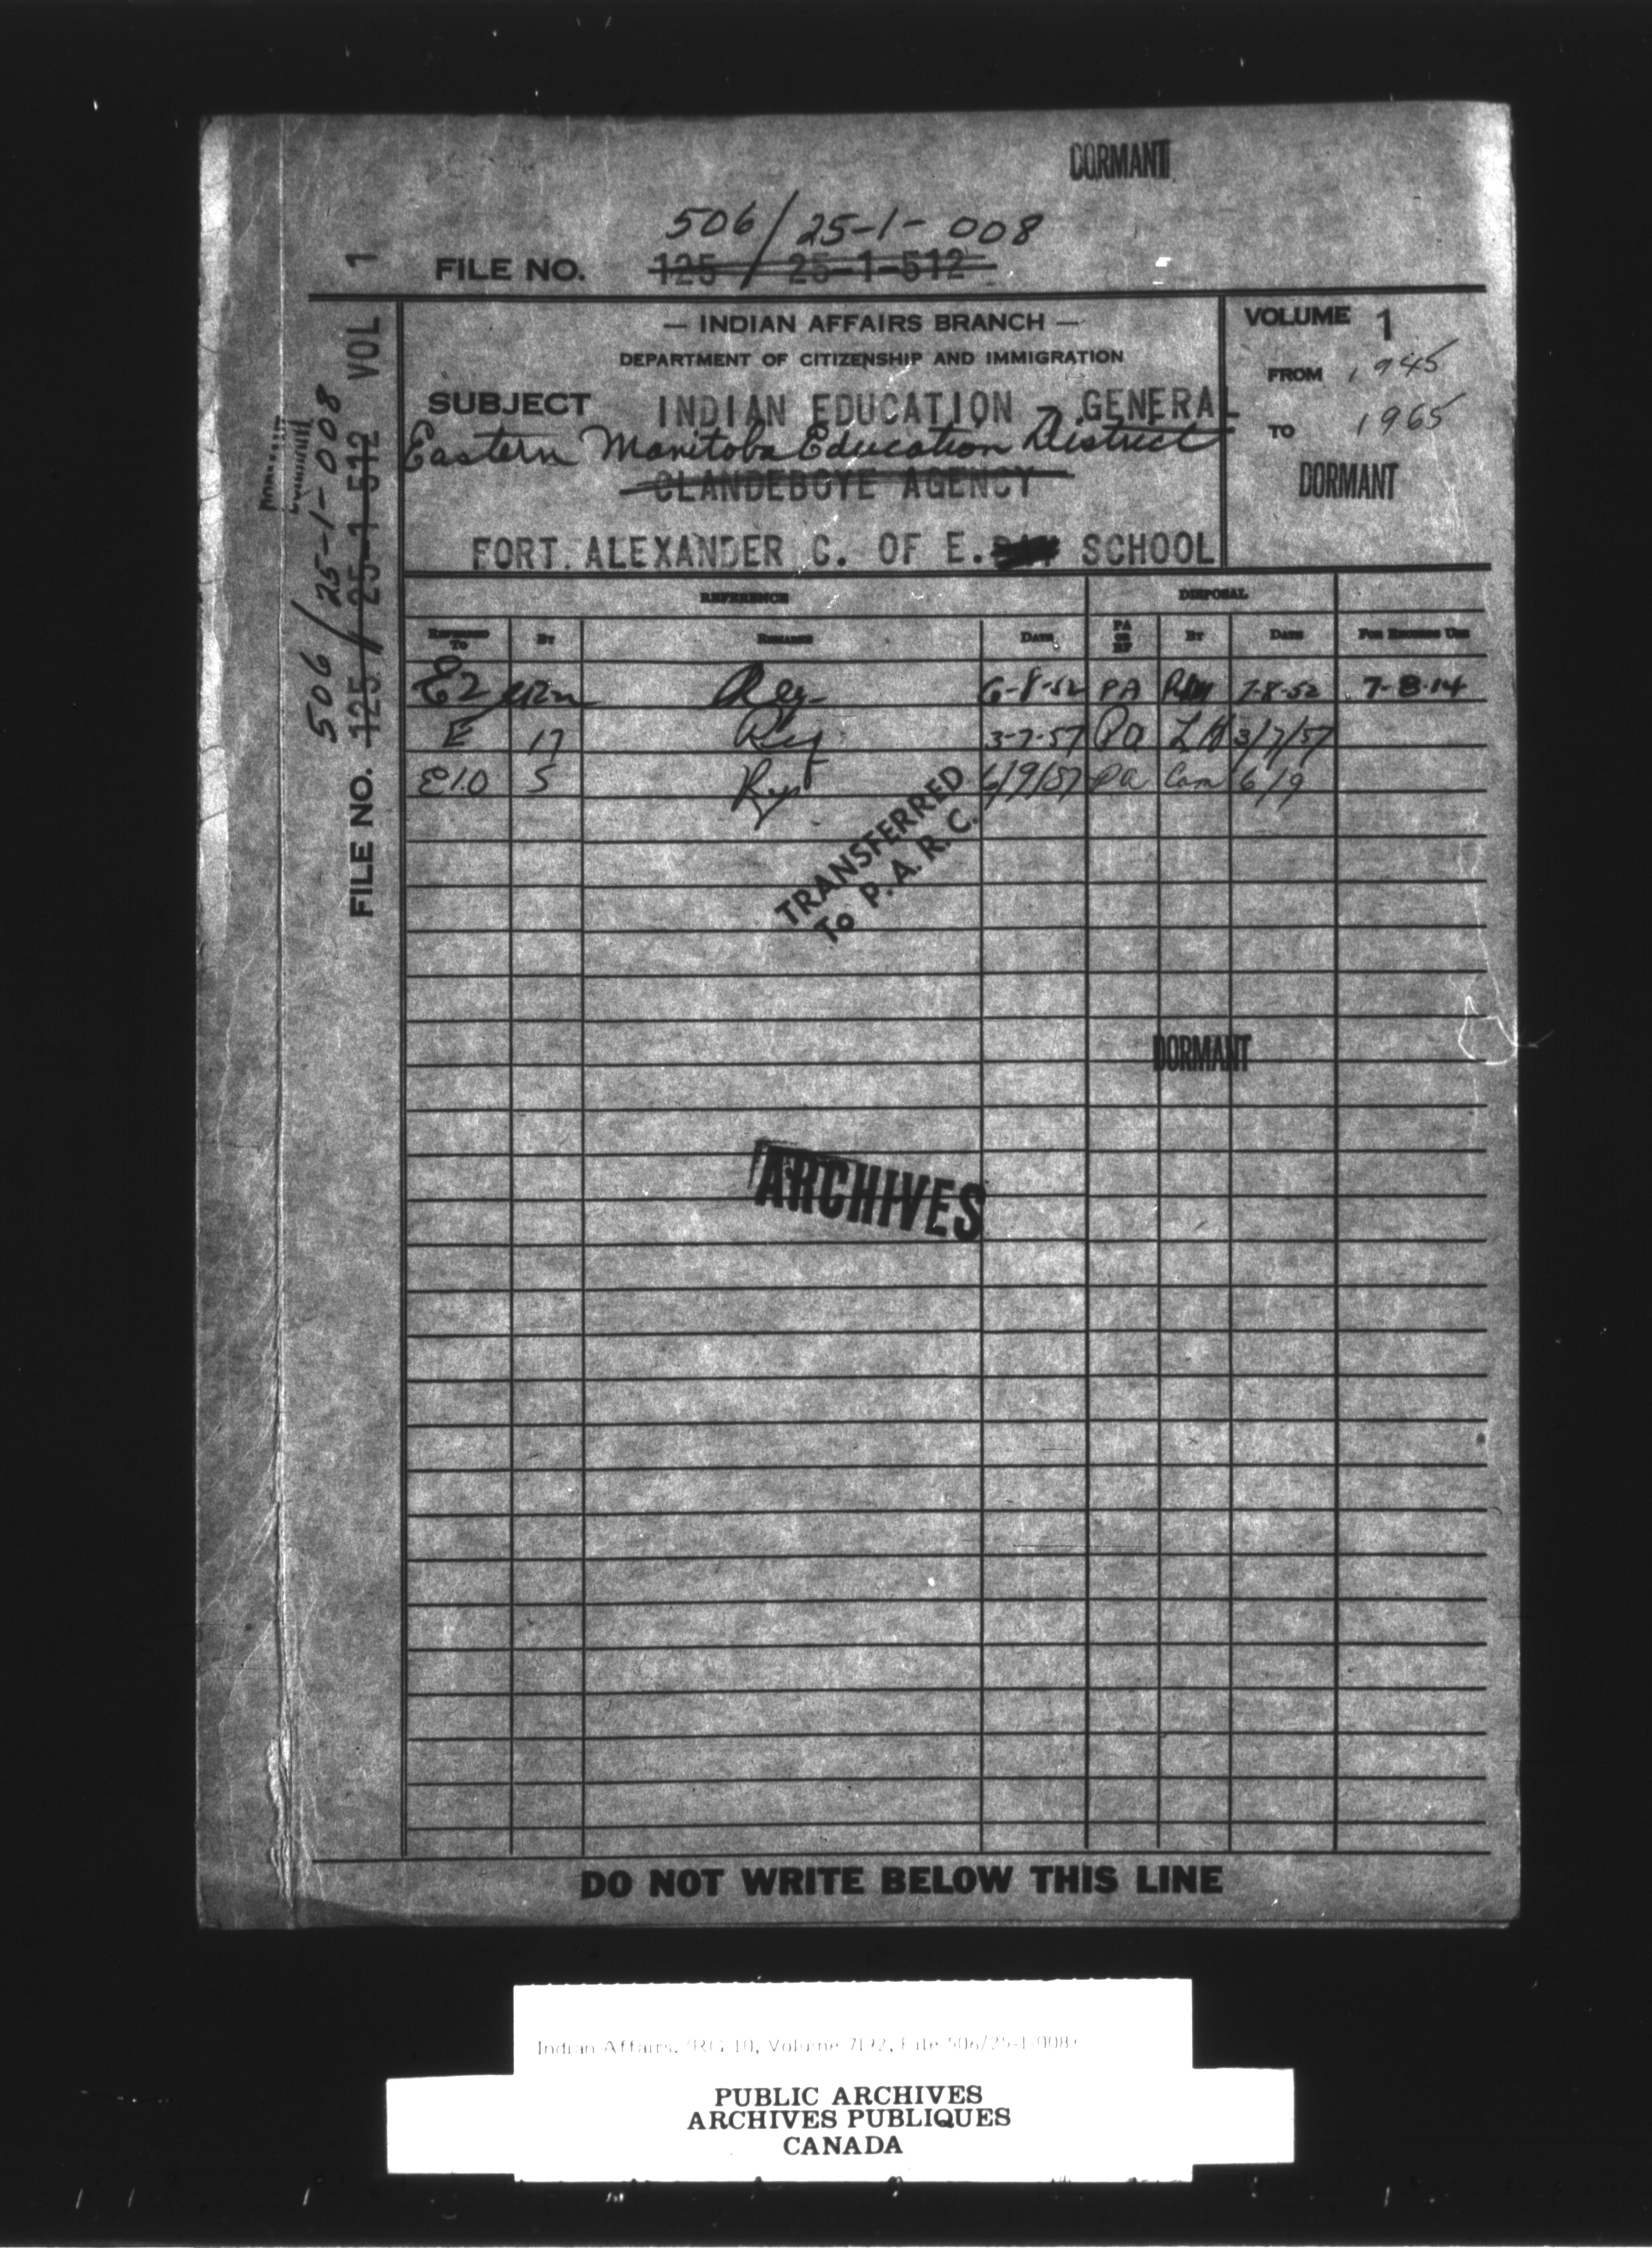 DORMANT
506/25-1-008
FILE NO. 125 / 25-1-512
— INDIAN AFFAIRS BRANCH —
DEPARTMENT OF CITIZENSHIP AND IMMIGRATION
SUBJECT INDIAN EDUCATION - GENERAL
Eastern Manitoba Education District
CLANDEBOYE AGENCY
FORT ALEXANDER C. OF E. SCHOOL
VOLUME 1
FROM 1945
TO 1965
DORMANT
506/25-1-008
FILE NO. 125 / 25-1-512 VOL 1
REFERENCE DISPOSAL
REFERRED TO BY REMARKS DATE PA OR BF BY DATE FOR RECORDS USE
E2 6-8-52 PA 7-8-52 7-8-14
E 17 3-7-57 PA LH 3/7/57
E10 S 6/9/57 PA Cam 6/9
TRANSFERRED
To P. A. R. C.
DORMANT
ARCHIVES
DO NOT WRITE BELOW THIS LINE
Indian Affairs. (RG 10, Volume 7192, File 506/25-1-008)
PUBLIC ARCHIVES
ARCHIVES PUBLIQUES
CANADA